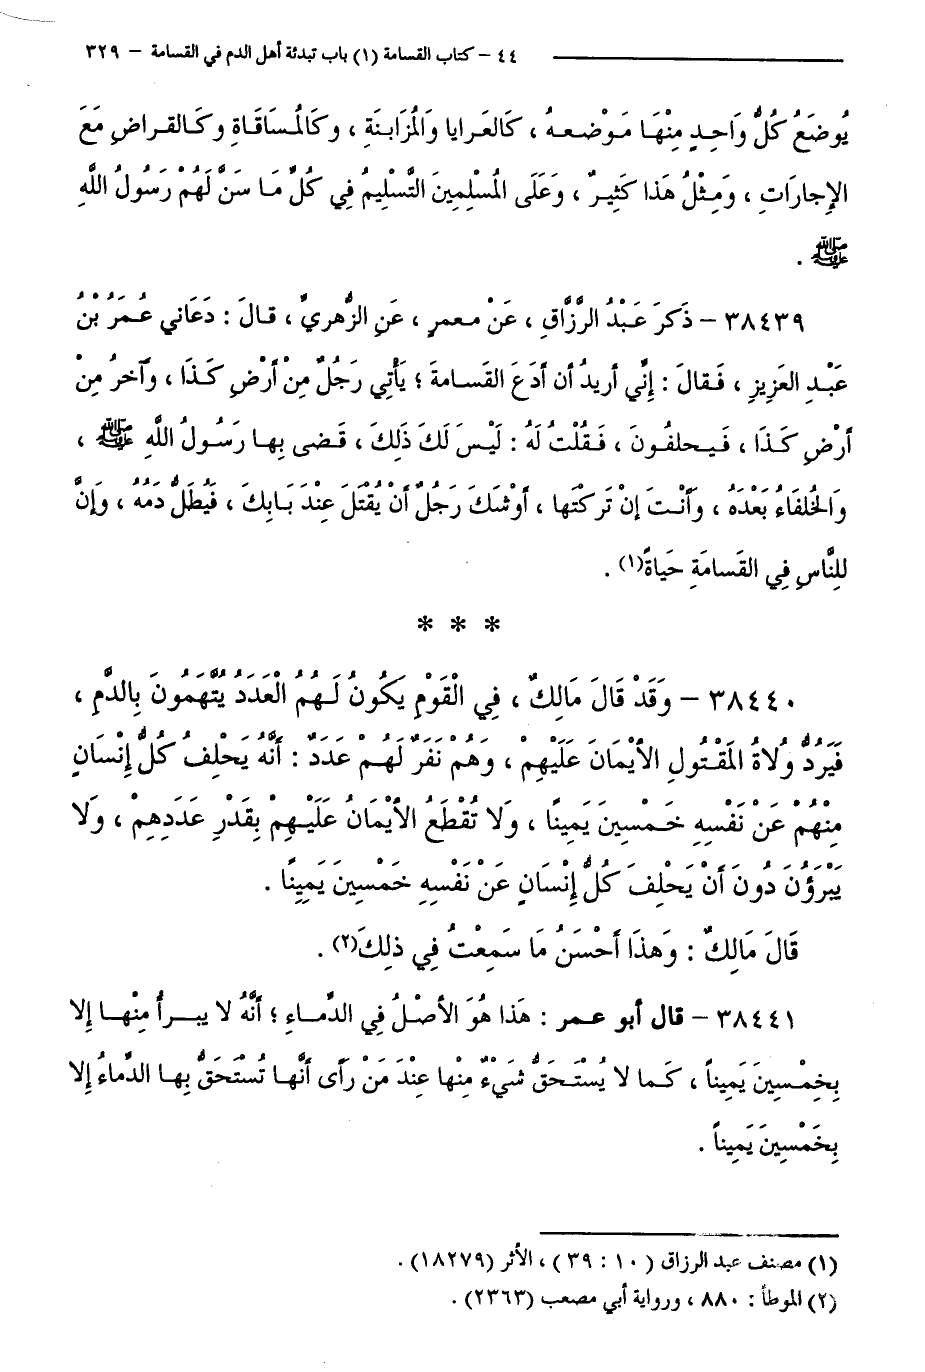 ٤٤ – كتاب القسامة (١) باب تبدئة أهل الدم في القسامة – ٣٢٩
يُوضَعُ كُلُّ وَاحِدٍ مِنْهَا مَوْضعهُ ، كَالعَرايا وَالمُزَابَنَةِ ، وكَالمُسَاقَاةِ وكَالقراضِ مَعَ
الإِجارَاتِ ، وَمِثْلُ هَذا كَثِيرٌ ، وَعَلَى المُسْلِمِينَ التَّسْلِيمُ فِي كُلِّ مَا سَنَّ لَهُمْ رَسُولُ اللَّهِ
ﷺ .
٣٨٤٣٩ – ذَكرَ عَبْدُ الرَّزَّاقِ ، عَنْ معمرٍ ، عَنِ الزُّهريِّ ، قالَ : دَعَاني عُمَرُ بْنُ
عَبْدِ العَزِيزِ ، فَقالَ : إِنِّي أريدُ أن أدَعَ القَسامةَ ؛ يَأْتِي رَجُلٌ مِنْ أَرْضِ كَذَا ، وآخرُ مِنْ
أَرْضِ كَذَا ، فَيحلفُونَ ، فَقُلْتُ لَهُ : لَيْسَ لَكَ ذَلِكَ ، قَضى بِها رَسُولُ اللَّهِ ﷺ ،
وَالخُلفَاءُ بَعْدَهُ ، وَأَنْتَ إِنْ تَركْتَها ، أَوْشَكَ رَجُلٌ أَنْ يُقْتَلَ عِنْدَ بَابِكَ ، فَيُطَلُّ دَمُهُ ، وَإِنَّ
لِلنَّاسِ فِي القَسامَةِ حَيَاةً(١) .
* * *
٣٨٤٤٠ – وَقَدْ قَالَ مَالِكٌ ، فِي الْقَوْمِ يَكُونُ لَهُمُ العَدَدُ يُتَّهَمُونَ بِالدَّمِ ،
فَيَرُدُّ وُلاةُ المَقْتُولِ الأَيْمَانَ عَلَيْهِمْ ، وَهُمْ نَفَرٌ لَهُمْ عَدَدٌ : أَنَّهُ يَحْلِفُ كُلُّ إِنْسَانٍ
مِنْهُمْ عَنْ نَفْسِهِ خَمْسِينَ يَمِينًا ، وَلَا تُقْطَعُ الأَيْمَانُ عَلَيْهِمْ بِقَدْرِ عَدَدِهِمْ ، وَلا
يَبْرَؤُنَ دُونَ أَنْ يَحْلِفَ كُلُّ إِنْسَانٍ عَنْ نَفْسِهِ خَمْسِينَ يَمِينًا .
قَالَ مَالِكٌ : وَهذَا أَحْسَنُ مَا سَمِعْتُ فِي ذلِكَ(٢) .
٣٨٤٤١ – قال أبو عمر : هَذا هُوَ الأَصْلُ فِي الدِّمَاءِ ؛ أَنَّهُ لا يبرأُ مِنْها إِلا
بِخِمْسِينَ يَمِيناً ، كَما لا يُسْتَحَقُّ شَيْءٌ مِنْها عِنْدَ مَنْ رَأَى أَنَّها تُسْتَحَقُّ بِها الدِّماءُ إِلا
بِخَمْسِينَ يَمِيناً .
(١) مصنف عبد الرزاق (١٠ : ٣٩) ، الأثر (١٨٢٧٩) .
(٢) الموطأ : ٨٨٠ ، ورواية أبي مصعب (٢٣٦٣) .